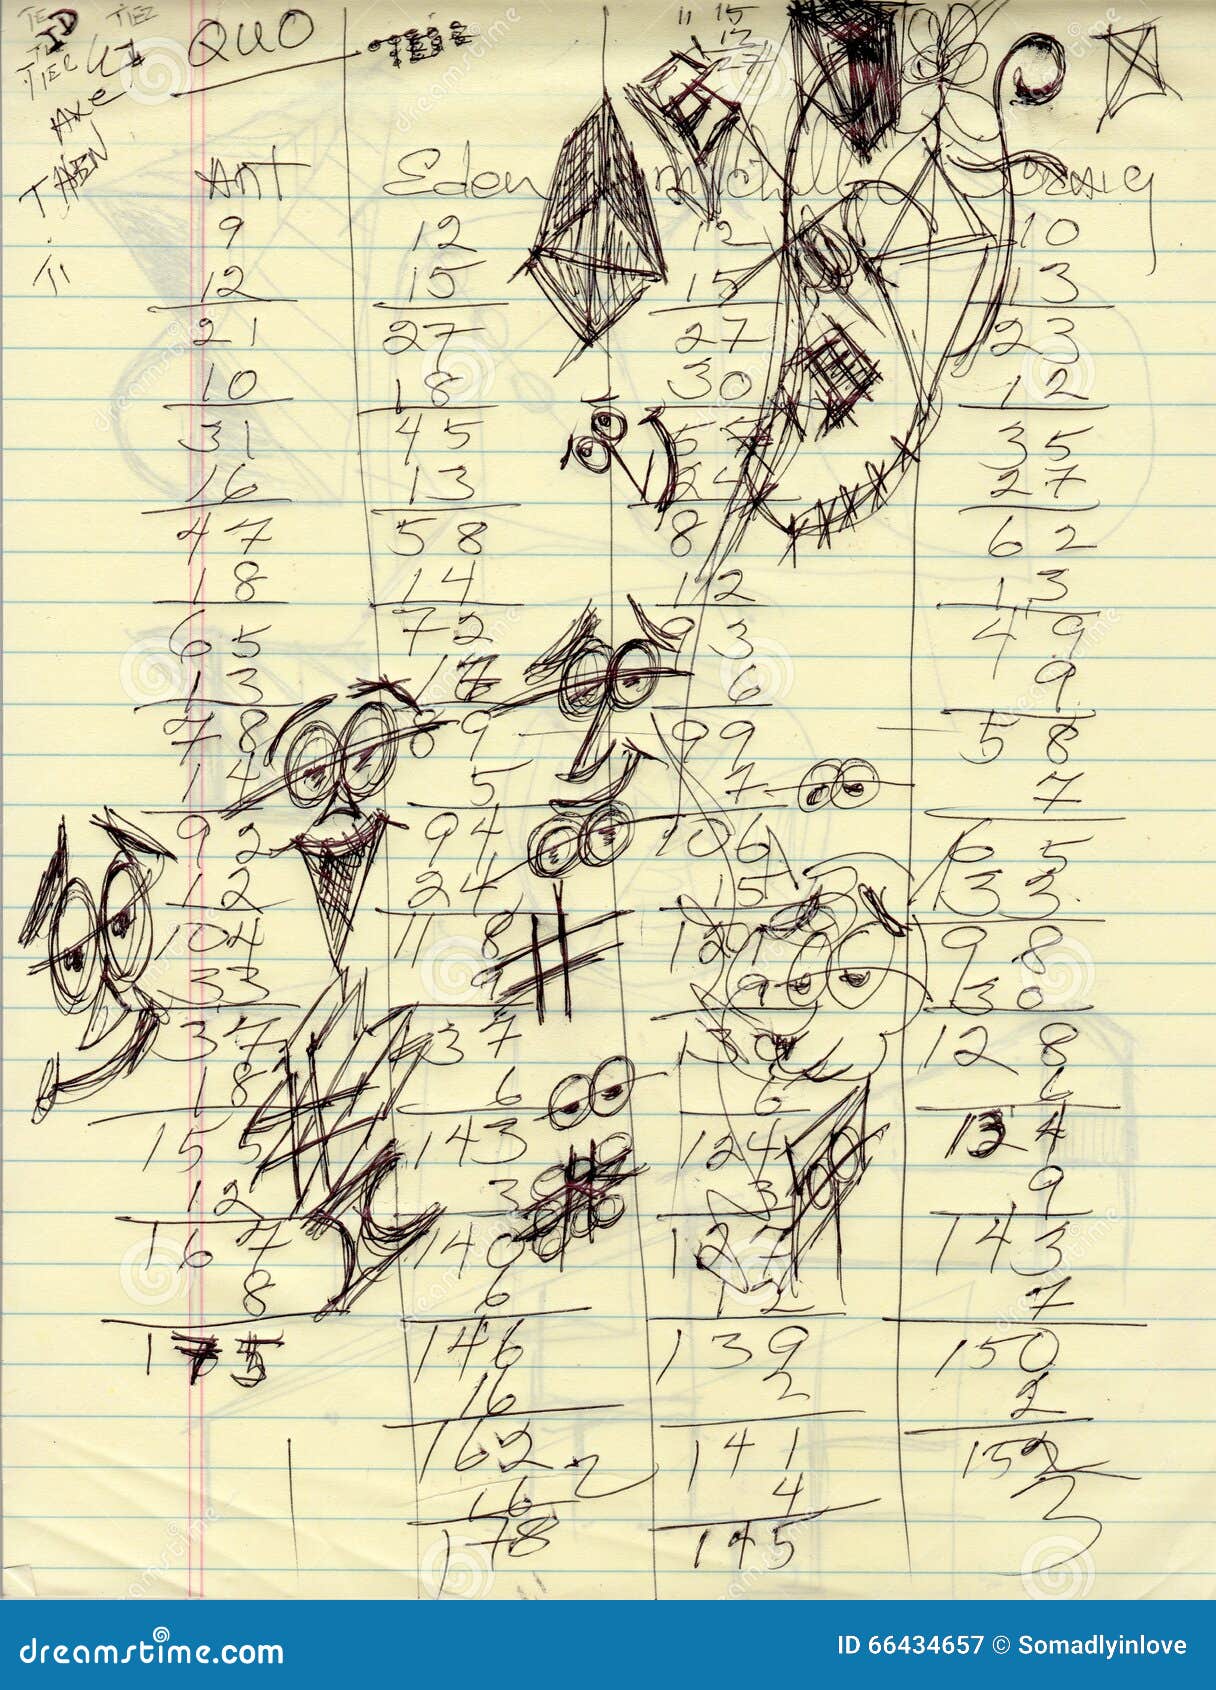 TIEZ
ID
TIEC
QUO
11 15
Axe
TABN
TI
Ant Eden mitchell Craig
9 12 12 10
12 15 15 13
21 27 27 23
10 18 30 12
31 45 5 35
16 13 24 27
47 58 8 62
18 14 12 13
65 72 93 49
13 17 6 9
78 89 99 58
14 5 7 7
92 94 106 65
12 24 15 33
104 118 121 98
33 9 9 30
37 37 130 128
18 6 6 6
155 143 124 134
12 3 3 9
167 140 127 143
8 6 12 7
175 146 139 150
16 2 2
162 141 152
16 4
178 145
dreamstime
ID 66434657 © Somadlyinlove